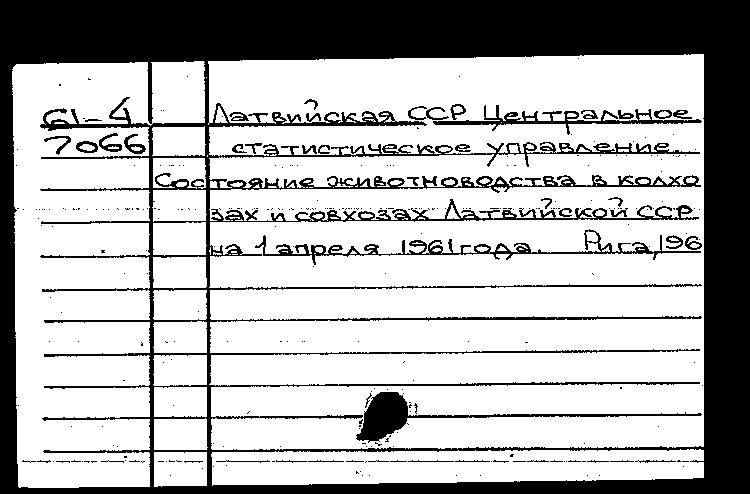 61-4 Латвийская ССР Центральное
7066 статистическое управление.
Состояние животноводства в колхо
зах и совхозах Латвийской ССР
на 1 апреля 1961 года. Рига, 196